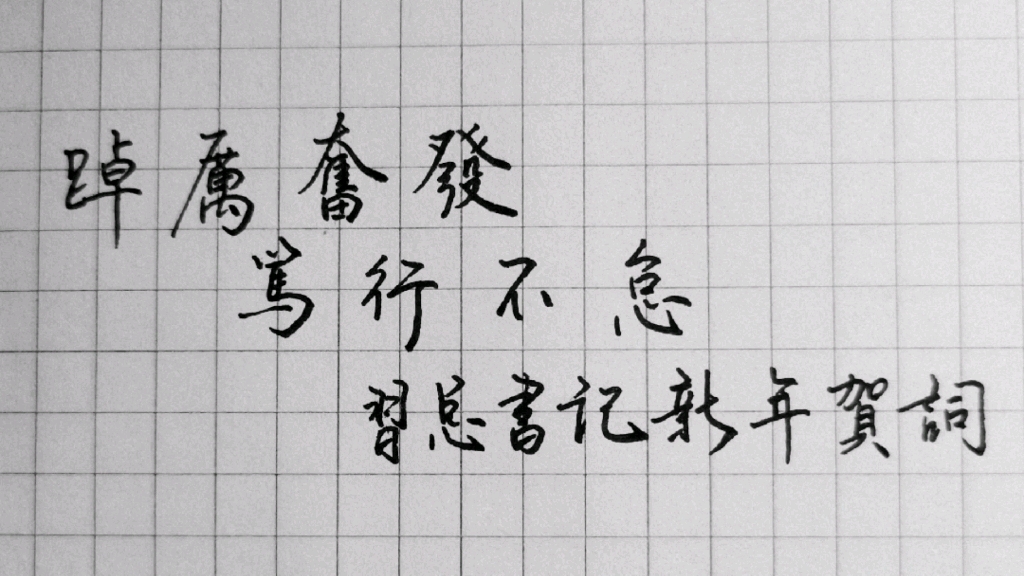 踔厲奮發
篤行不怠
習总書記新年賀詞